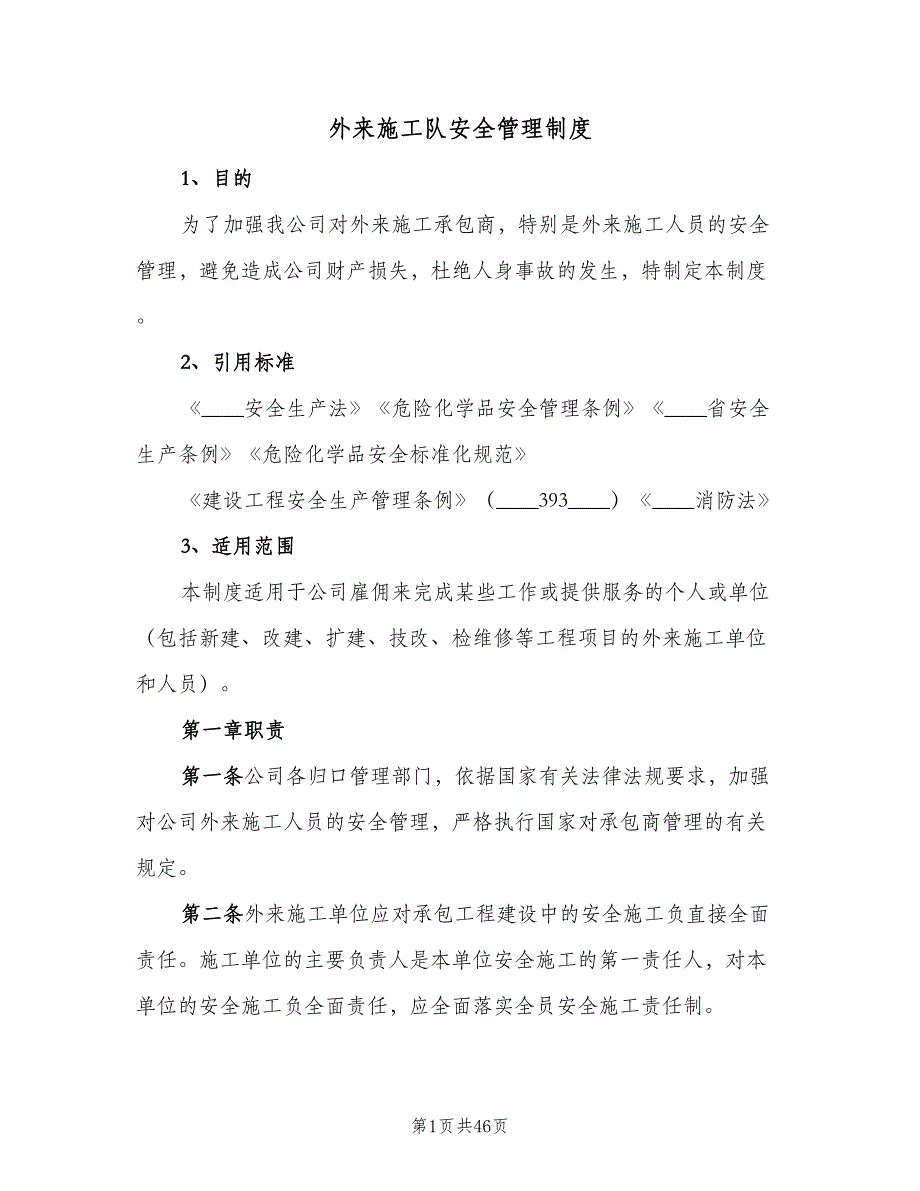 外来施工队安全管理制度
1、目的
为了加强我公司对外来施工承包商，特别是外来施工人员的安全
管理，避免造成公司财产损失，杜绝人身事故的发生，特制定本制度
。
2、引用标准
《____安全生产法》《危险化学品安全管理条例》《____省安全
生产条例》《危险化学品安全标准化规范》
《建设工程安全生产管理条例》（____393____）《____消防法》
3、适用范围
本制度适用于公司雇佣来完成某些工作或提供服务的个人或单位
（包括新建、改建、扩建、技改、检维修等工程项目的外来施工单位
和人员）。
第一章职责
第一条公司各归口管理部门，依据国家有关法律法规要求，加强
对公司外来施工人员的安全管理，严格执行国家对承包商管理的有关
规定。
第二条外来施工单位应对承包工程建设中的安全施工负直接全面
责任。施工单位的主要负责人是本单位安全施工的第一责任人，对本
单位的安全施工负全面责任，应全面落实全员安全施工责任制。
第1页共46页